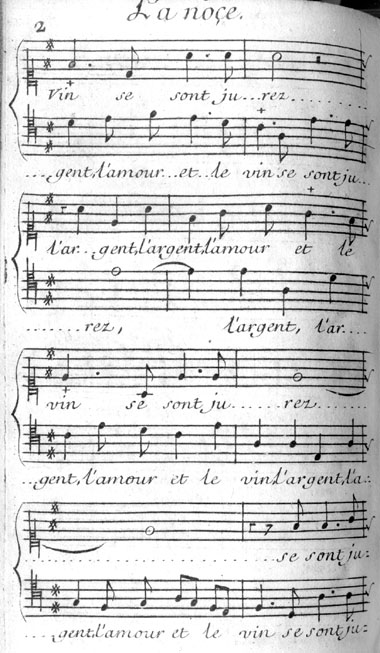 2
La noçe.
Vin se sont ju...rez..........
....gent, l'amour...et..le vin se sont ju...
l'ar...gent, l'argent, l'amour et le
........rez, l'argent, l'ar....
vin se sont ju......rez......
...gent, l'amour et le vin l'argent, l'a:
..............................se sont ju:
....gent, l'amour et le vin se sont ju: